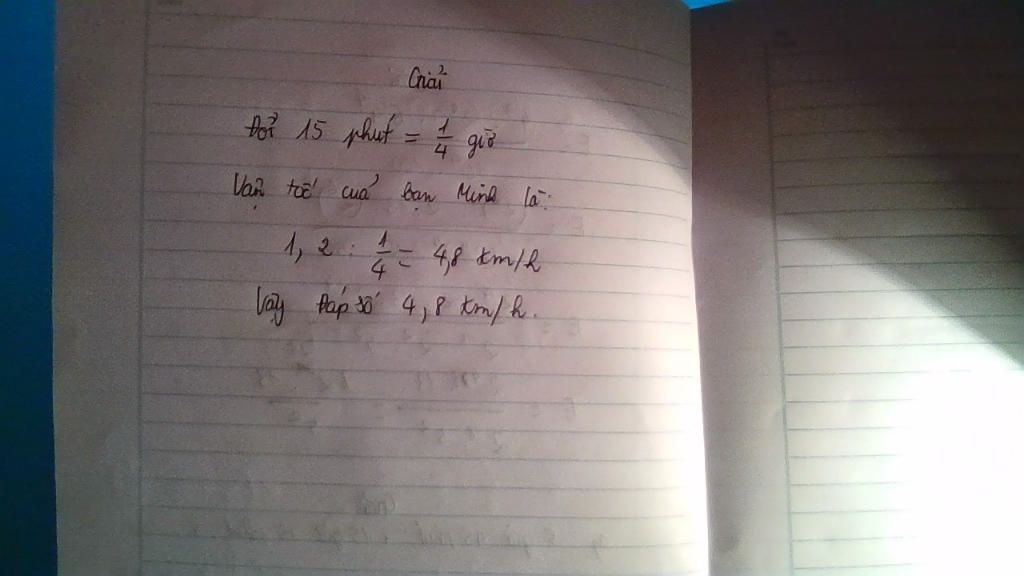 Giải
Đổi 15 phút = 1/4 giờ
Vận tốc của bạn Minh là:
1,2 : 1/4 = 4,8 km/h
Vậy Đáp số 4,8 km/h.